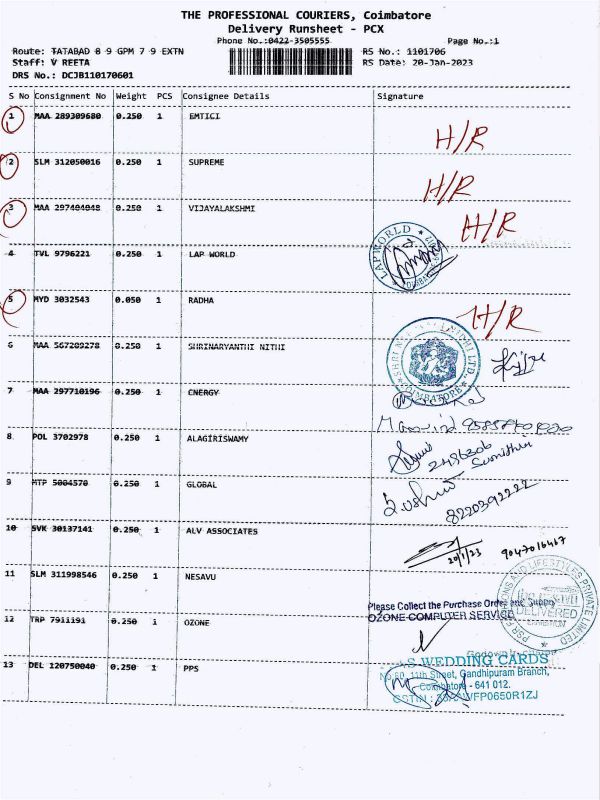 THE PROFESSIONAL COURIERS, Coimbatore
Delivery Runsheet - PCX
Phone No.:0422-3505555 Page No.:1
Route: TATABAD 8 9 GPM 7 9 EXTN RS No.: 1101706
Staff: V REETA RS Date: 20-Jan-2023
DRS No.: DCJB110170601
S No Consignment No Weight PCS Consignee Details Signature
1 MAA 289309680 0.250 1 EMTICI H/R
2 SLM 312050016 0.250 1 SUPREME H/R
3 MAA 297404048 0.250 1 VIJAYALAKSHMI H/R
4 TVL 9796221 0.250 1 LAP WORLD LAP WORLD
5 MYD 3032543 0.050 1 RADHA H/R
6 MAA 567209278 0.250 1 SHRINARYANTHI NITHI COIMBATORE
7 MAA 297710196 0.250 1 CNERGY
8 POL 3702978 0.250 1 ALAGIRISWAMY
9 MTP 5004570 0.250 1 GLOBAL 8220392222
10 SVK 30137141 0.250 1 ALV ASSOCIATES 20/1/23 9047016467
11 SLM 311998546 0.250 1 NESAVU
DELIVERED
Please Collect the Purchase Order and Supply
12 TRP 7911191 0.250 1 OZONE OZONE COMPUTER SERVICE
13 DEL 120750040 0.250 1 PPS WEDDING CARDS
11th Street, Gandhipuram Branch,
Coimbatore - 641 012.